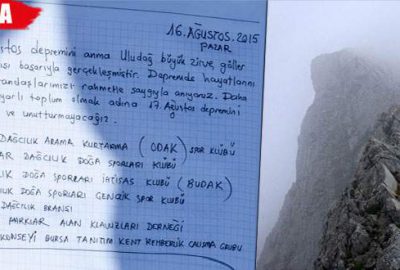 A
16.AĞUSTOS.2015
PAZAR
stos depremini anma Uludağ büyük zirve, göller
ısı başarıyla gerçekleşmiştir. Depremde hayatlarını
andaşlarımızı rahmetle saygıyla anıyoruz. Daha
yarlı toplum olmak adına 17.Ağustos depremini
ve unutturmayacağız.
DAĞCILIK ARAMA KURTARMA (ODAK) SPOR KLÜBÜ
AR DAĞCILIK DOĞA SPORLARI KLÜBÜ
LIK DOĞA SPORLARI İHTİSAS KLÜBÜ (BUDAK)
ILIK DOĞA SPORLARI GENÇLİK SPOR KLÜBÜ
DAĞCILIK BRANŞI
PARKLAR ALAN KLAVUZLARI DERNEĞİ
KONSEYİ BURSA TANITIM KENT REHBERLİK ÇALIŞMA GRUBU